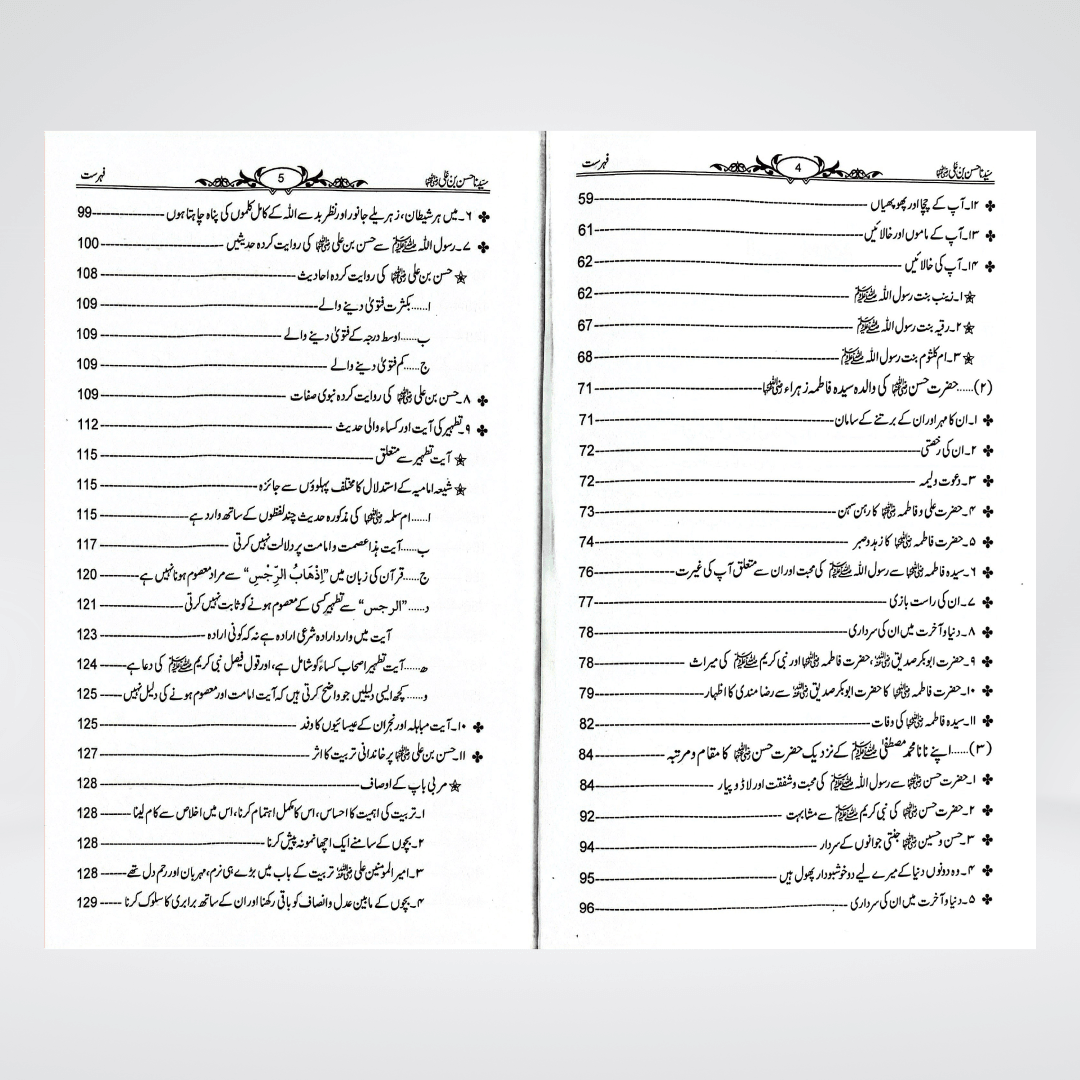 سیدنا حسن بن علی رضی اللہ عنہما
4
فہرست
✤ ۱۲۔آپ کے چچا اور پھوپھیاں ---- 59
✤ ۱۳۔آپ کے ماموں اور خالائیں ---- 61
✤ ۱۴۔آپ کی خالائیں ---- 62
✭ ۱۔زینب بنت رسول اللہ ﷺ ---- 62
✭ ۲۔رقیہ بنت رسول اللہ ﷺ ---- 67
✭ ۳۔ام کلثوم بنت رسول اللہ ﷺ ---- 68
(۲).....حضرت حسن رضی اللہ عنہ کی والدہ سیدہ فاطمہ زہراء رضی اللہ عنہا ---- 71
✤ ۱۔ان کا مہر اور ان کے برتنے کے سامان ---- 71
✤ ۲۔ان کی رخصتی ---- 72
✤ ۳۔دعوت ولیمہ ---- 72
✤ ۴۔حضرت علی و فاطمہ رضی اللہ عنہما کا رہن سہن ---- 73
✤ ۵۔حضرت فاطمہ رضی اللہ عنہا کا زہد و صبر ---- 74
✤ ۶۔سیدہ فاطمہ رضی اللہ عنہا سے رسول اللہ ﷺ کی محبت اور ان سے متعلق آپ کی غیرت ---- 76
✤ ۷۔ان کی راست بازی ---- 77
✤ ۸۔دنیا و آخرت میں ان کی سرداری ---- 78
✤ ۹۔حضرت ابوبکر صدیق رضی اللہ عنہ، حضرت فاطمہ رضی اللہ عنہا اور نبی کریم ﷺ کی میراث ---- 78
✤ ۱۰۔حضرت فاطمہ رضی اللہ عنہا کا حضرت ابوبکر صدیق رضی اللہ عنہ سے رضا مندی کا اظہار ---- 79
✤ ۱۱۔سیدہ فاطمہ رضی اللہ عنہا کی وفات ---- 82
(۳).....اپنے نانا محمد مصطفیٰ ﷺ کے نزدیک حضرت حسن رضی اللہ عنہ کا مقام و مرتبہ ---- 84
✤ ۱۔حضرت حسن رضی اللہ عنہ سے رسول اللہ ﷺ کی محبت و شفقت اور لاڈ و پیار ---- 84
✤ ۲۔حضرت حسن رضی اللہ عنہ کی نبی کریم ﷺ سے مشابہت ---- 92
✤ ۳۔حسن و حسین رضی اللہ عنہما جنتی جوانوں کے سردار ---- 94
✤ ۴۔وہ دونوں دنیا کے میرے لیے دو خوشبودار پھول ہیں ---- 95
✤ ۵۔دنیا و آخرت میں ان کی سرداری ---- 96
سیدنا حسن بن علی رضی اللہ عنہما
5
فہرست
✤ ۶۔میں ہر شیطان، زہریلے جانور اور نظر بد سے اللہ کے کامل کلموں کی پناہ چاہتا ہوں ---- 99
✤ ۷۔رسول اللہ ﷺ سے حسن بن علی رضی اللہ عنہما کی روایت کردہ حدیثیں ---- 100
✭ حسن بن علی رضی اللہ عنہما کی روایت کردہ احادیث ---- 108
ا......بکثرت فتویٰ دینے والے ---- 109
ب......اوسط درجہ کے فتویٰ دینے والے ---- 109
ج......کم فتویٰ دینے والے ---- 109
✤ ۸۔حسن بن علی رضی اللہ عنہما کی روایت کردہ نبوی صفات ---- 109
✤ ۹۔تطہیر کی آیت اور کساء والی حدیث ---- 112
✭ آیت تطہیر سے متعلق ---- 115
✭ شیعہ امامیہ کے استدلال کا مختلف پہلوؤں سے جائزہ ---- 115
ا......ام سلمہ رضی اللہ عنہا کی مذکورہ حدیث چند لفظوں کے ساتھ وارد ہے ---- 115
ب......آیت ہذا عصمت و امامت پر دلالت نہیں کرتی ---- 117
ج......قرآن کی زبان میں ”اِذْهَابُ الرِّجْسِ“ سے مراد معصوم ہونا نہیں ہے ---- 120
د......”الرجس“ سے تطہیر کسی کے معصوم ہونے کو ثابت نہیں کرتی ---- 121
آیت میں وارد ارادہ شرعی ارادہ ہے نہ کہ کونی ارادہ ---- 123
ھ......آیت تطہیر اصحاب کساء کو شامل ہے، اور قول فیصل نبی کریم ﷺ کی دعا ہے ---- 124
و......کچھ ایسی دلیلیں جو واضح کرتی ہیں کہ آیت امامت اور معصوم ہونے کی دلیل نہیں ---- 125
✤ ۱۰۔آیت مباہلہ اور نجران کے عیسائیوں کا وفد ---- 125
✤ ۱۱۔حسن بن علی رضی اللہ عنہما پر خاندانی تربیت کا اثر ---- 127
✭ مربی باپ کے اوصاف ---- 128
۱۔تربیت کی اہمیت کا احساس، اس کا مکمل اہتمام کرنا، اس میں اخلاص سے کام لینا ---- 128
۲۔بچوں کے سامنے ایک اچھا نمونہ پیش کرنا ---- 128
۳۔امیر المومنین علی رضی اللہ عنہ تربیت کے باب میں بڑے ہی نرم، مہربان اور رحم دل تھے ---- 128
۴۔بچوں کے مابین عدل و انصاف کو باقی رکھنا اور ان کے ساتھ برابری کا سلوک کرنا ---- 129